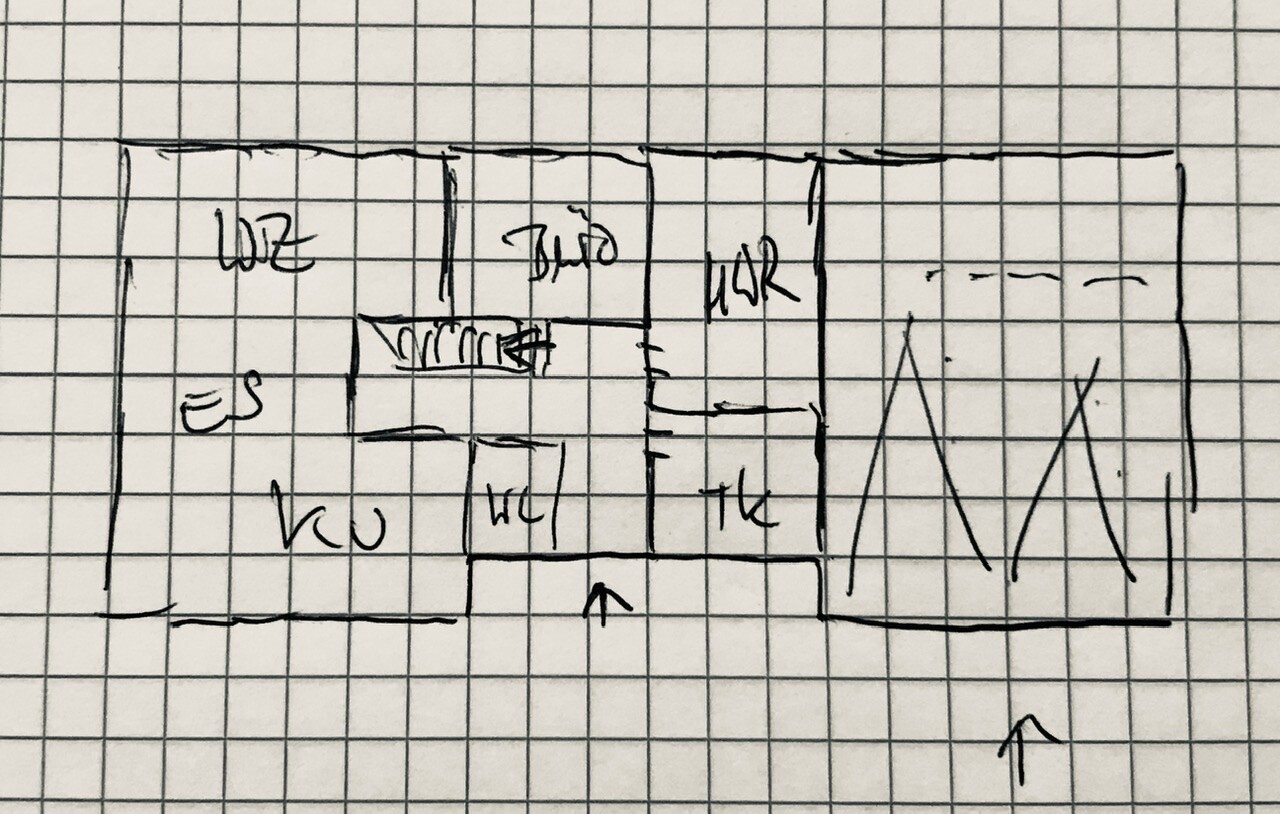 WZ
Büro
HWR
ES
WC
TK